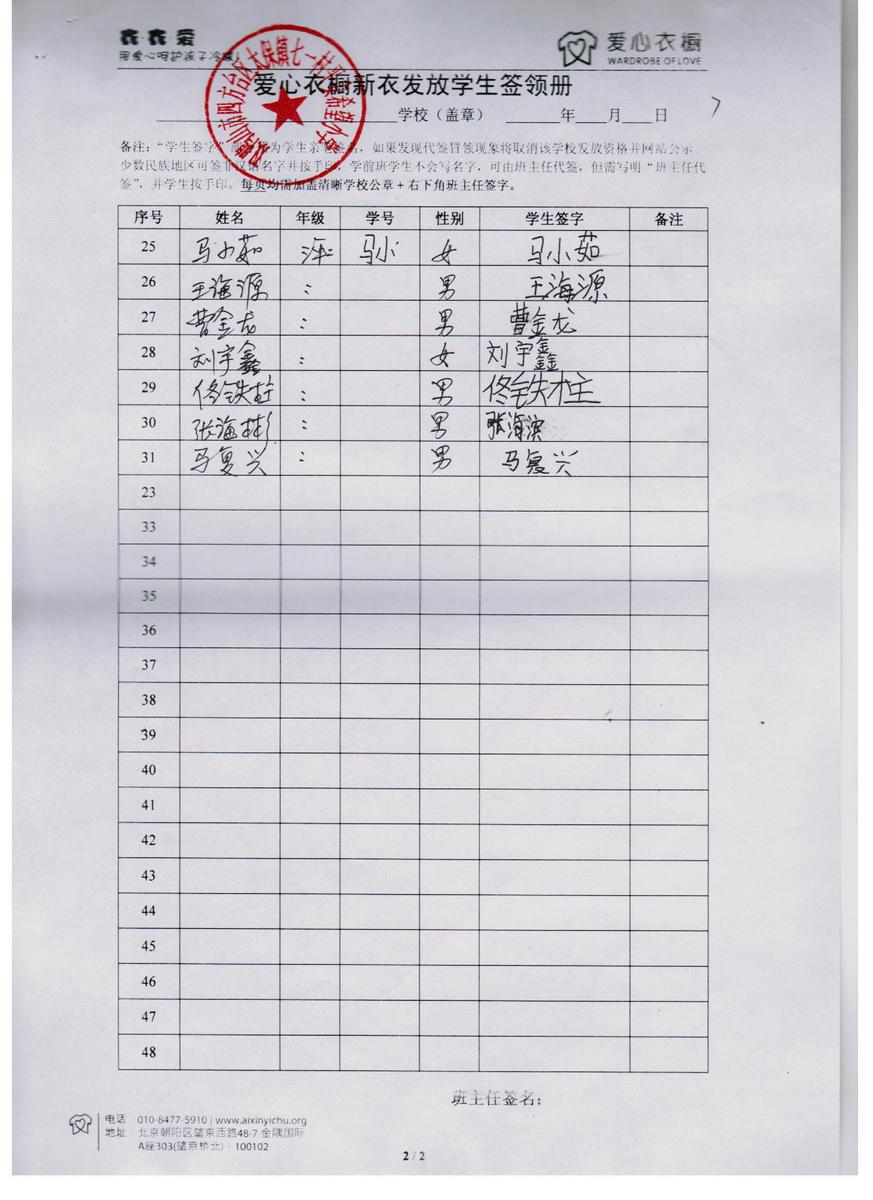 衣衣爱
用爱心呵护孩子冷暖!
爱心衣橱
WARDROBE OF LOVE
爱心衣橱新衣发放学生签领册
学校（盖章） 年 月 日
市四方台区太保镇七一村
备注：“学生签字” 为学生亲笔签名，如果发现代签冒领现象将取消该学校发放资格并网站公示。
少数民族地区可签非汉语名字并按手印，学前班学生不会写名字，可由班主任代签，但需写明“班主任代
签”，并学生按手印。每页均需加盖清晰学校公章+右下角班主任签字。
序号 姓名 年级 学号 性别 学生签字 备注
25 马小茹 马小 女 马小茹
26 王海源 : 男 王海源
27 曹金龙 : 男 曹金龙
28 刘宇鑫 : 女 刘宇鑫
29 佟铁柱 : 男 佟铁柱
30 张海彬 : 男 张海滨
31 马复兴 : 男 马复兴
23
33
34
35
36
37
38
39
40
41
42
43
44
45
46
47
48
班主任签名：
电话 010-8477-5910 | www.aixinyichu.org
地址 北京朝阳区望京西路48-7 金隅国际
A座303(望京桥北) · 100102
2 / 2